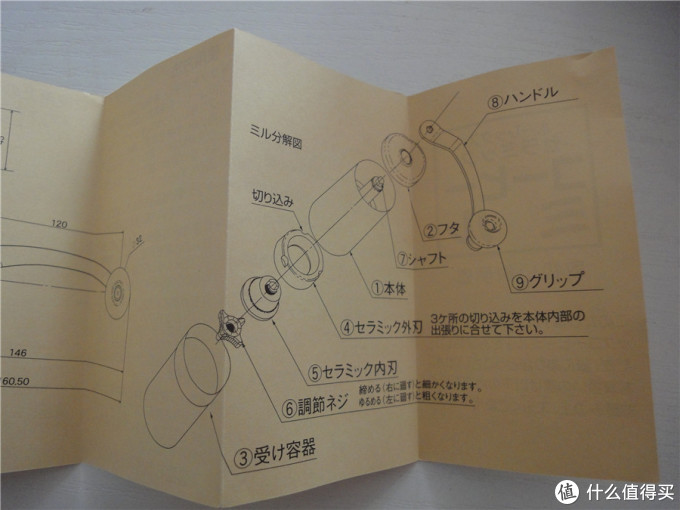 ミル分解図
⑧ハンドル
切り込み
②フタ
⑦シャフト
⑨グリップ
①本体
④セラミック外刃
3ケ所の切り込みを本体内部の
出張りに合せて下さい。
⑤セラミック内刃
⑥調節ネジ
締める(右に廻す)と細かくなります。
ゆるめる(左に廻す)と粗くなります。
③受け容器
120
146
160.50
值 什么值得买